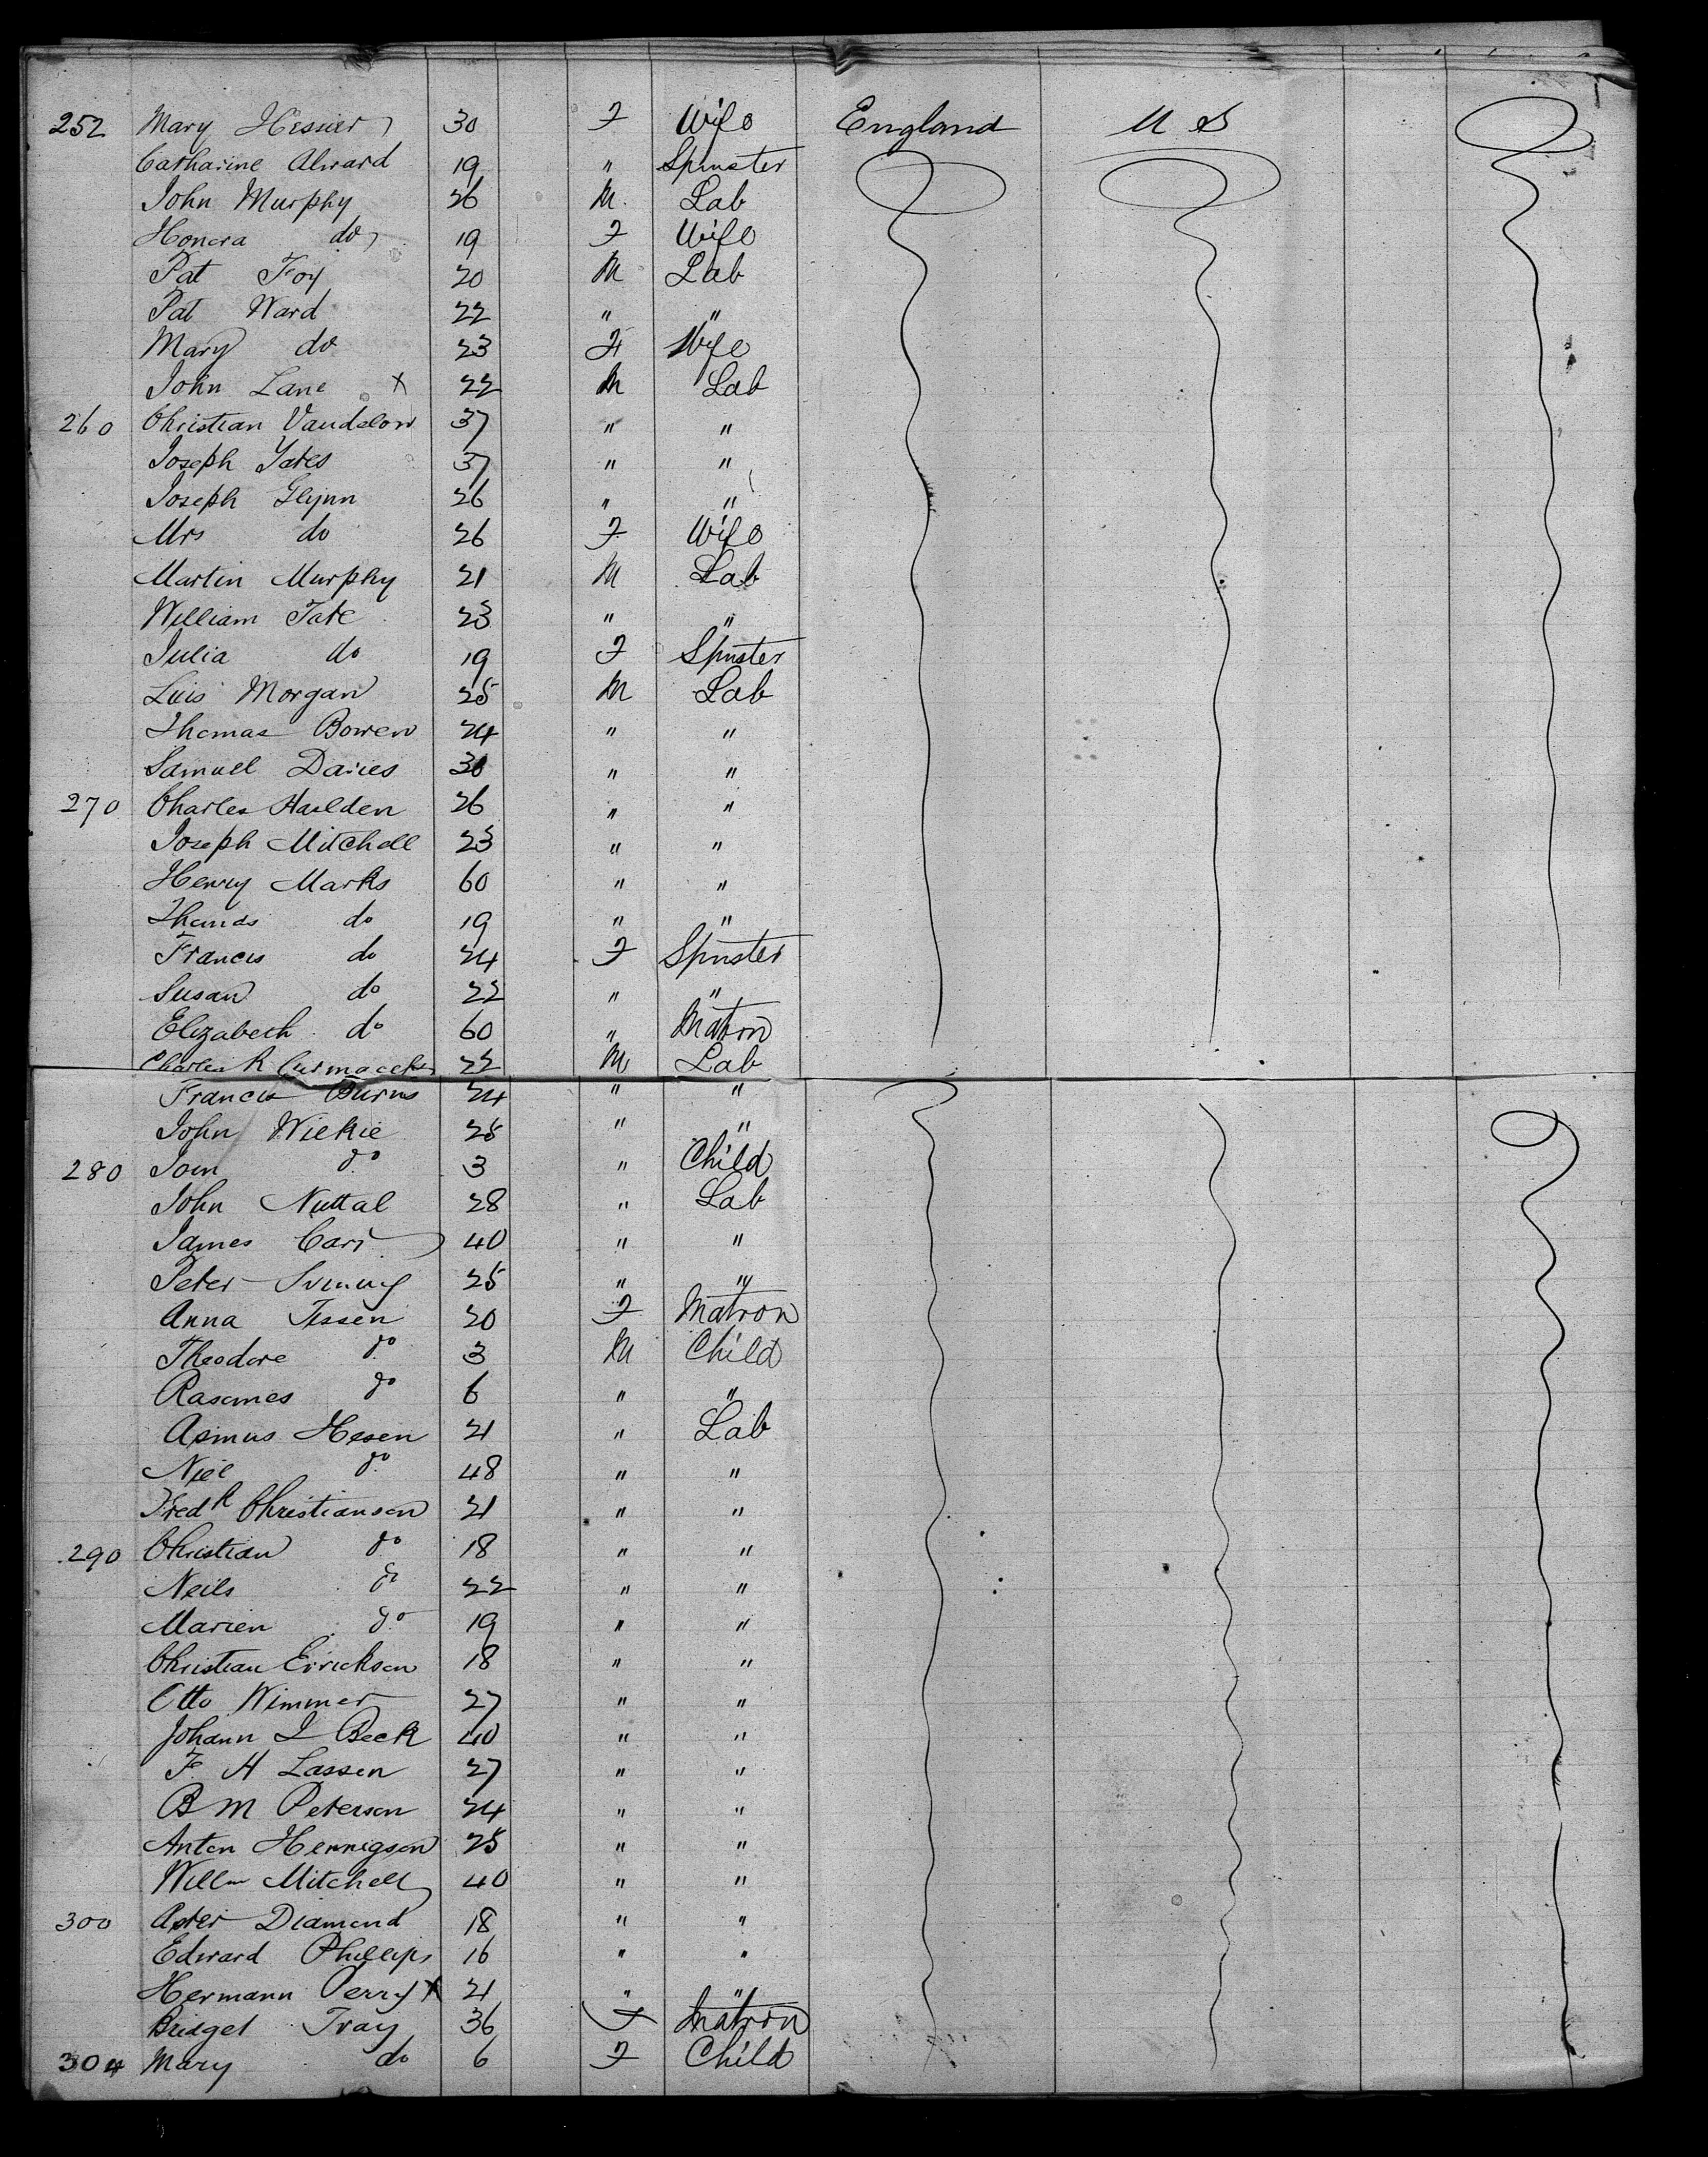 252 Mary Hessier 30 F Wife England U S
Catharine Alward 19 " Spinster
John Murphy 26 M. Lab
Honora do 19 F Wife
Pat Foy 20 M Lab
Pat Ward 22 " "
Mary do 23 F Wife
John Lane x 22 M Lab
260 Christian Vandslow 37 " "
Joseph Yates 37 " "
Joseph Glynn 26 " "
Mrs do 26 F Wife
Martin Murphy 21 M Lab
William Tate 23 " "
Julia do 19 F Spnster
Luis Morgan 25 M Lab
Thomas Bowen 24 " "
Samuel Davies 30 " "
270 Charles Haulden 26 " "
Joseph Mitchell 23 " "
Henry Marks 60 " "
Thomas do 19 " "
Francis do 24 F Spnster
Susan do 22 " "
Elizabeth do 60 " Matron
Charles R 22 M Lab
Francis Burns 24 " "
John Wilkie 28 " "
280 do 3 " Child
John Nuttal 28 " Lab
James Carr 40 " "
Peter 25 " "
Anna Tessen 20 F Matron
Theodore do 3 M Child
Rasmes do 6 " "
Asmus Hesen 21 " Lab
Niel do 48 " "
Fredk Christianson 21 " "
290 Christian do 18 " "
Neils do 22 " "
Marien do 19 " "
Christian Errickson 18 " "
Otto Wimmer 27 " "
Johann I Beck 40 " "
F. H Lassen 27 " "
B M Peterson 24 " "
Anton Hennigson 25 " "
Willm Mitchell 40 " "
300 Diamond 18 " "
Edward Phillips 16 " "
Hermann Perry x 21 " "
Bridget Tray 36 F Matron
304 Mary do 6 F Child